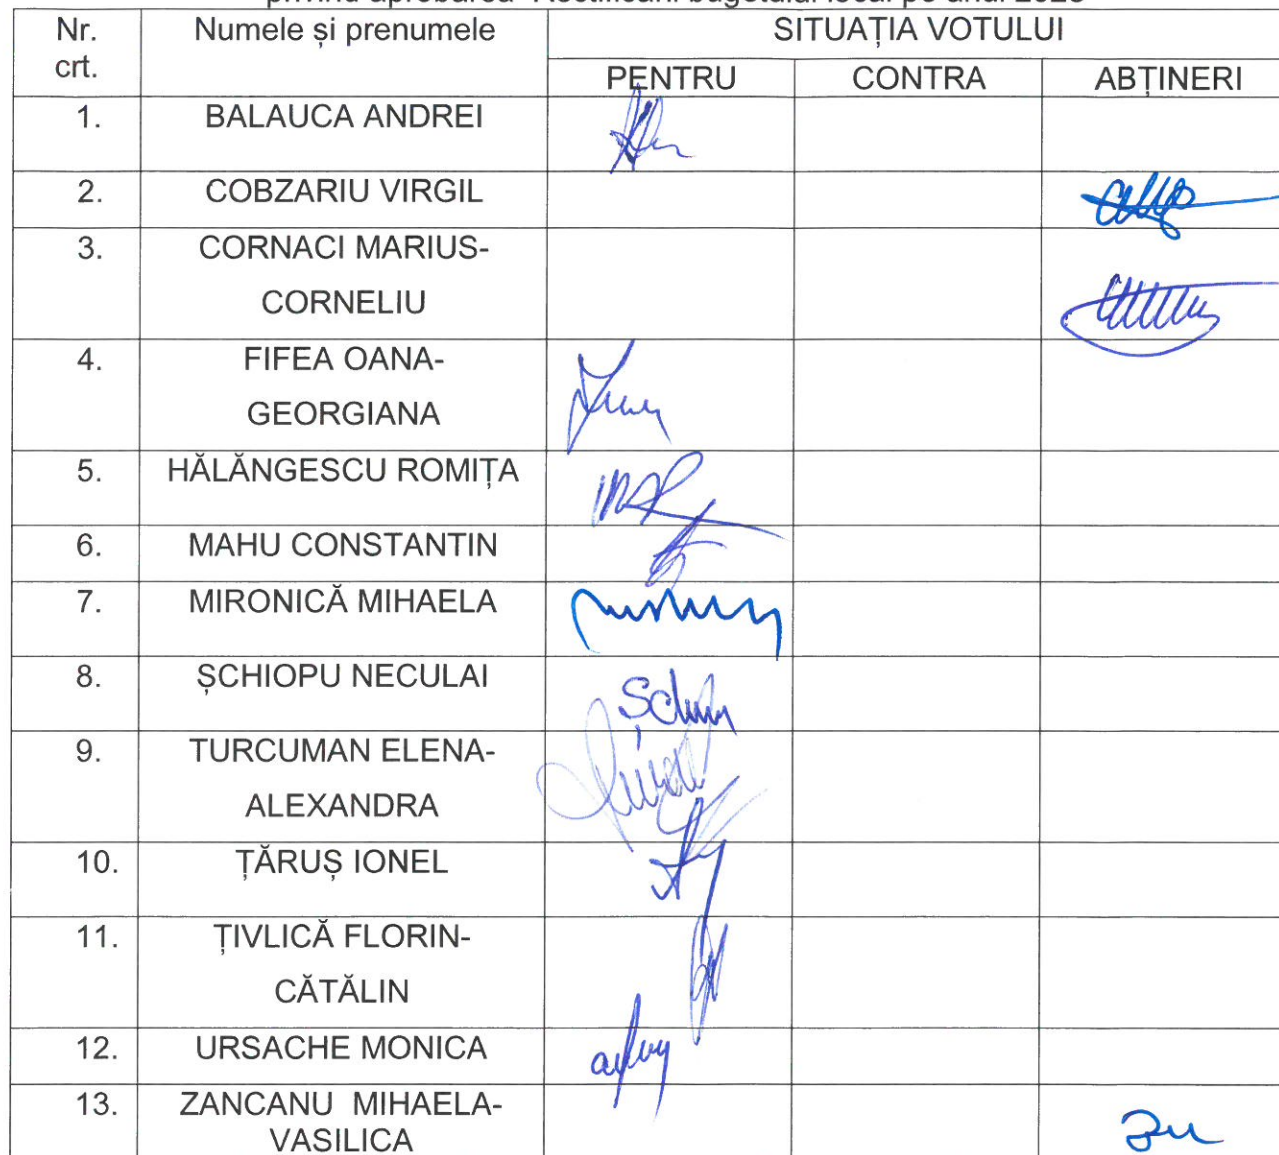 privind aprobarea Rectificării bugetului local pe anul 2025
Nr. crt. Numele și prenumele SITUAȚIA VOTULUI
PENTRU CONTRA ABȚINERI
1. BALAUCA ANDREI
2. COBZARIU VIRGIL
3. CORNACI MARIUS-
CORNELIU
4. FIFEA OANA-
GEORGIANA
5. HĂLĂNGESCU ROMIȚA
6. MAHU CONSTANTIN
7. MIRONICĂ MIHAELA
8. ȘCHIOPU NECULAI
9. TURCUMAN ELENA-
ALEXANDRA
10. ȚĂRUȘ IONEL
11. ȚIVLICĂ FLORIN-
CĂTĂLIN
12. URSACHE MONICA
13. ZANCANU MIHAELA-
VASILICA